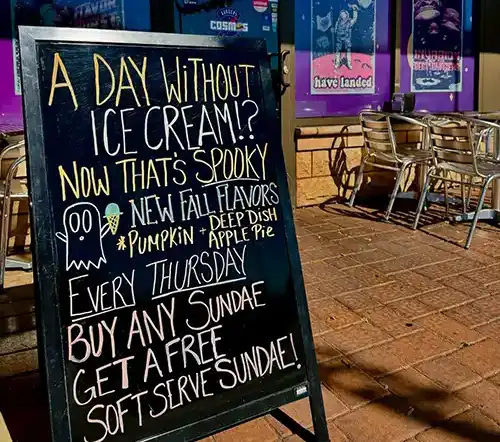 A DAY WITHOUT
ICE CREAM!?
NOW THAT'S SPOOKY
NEW FALL FLAVORS
*PUMPKIN + DEEP DISH
APPLE PIE
EVERY THURSDAY
BUY ANY SUNDAE
GET A FREE
SOFT SERVE SUNDAE!
COSMOS
have landed